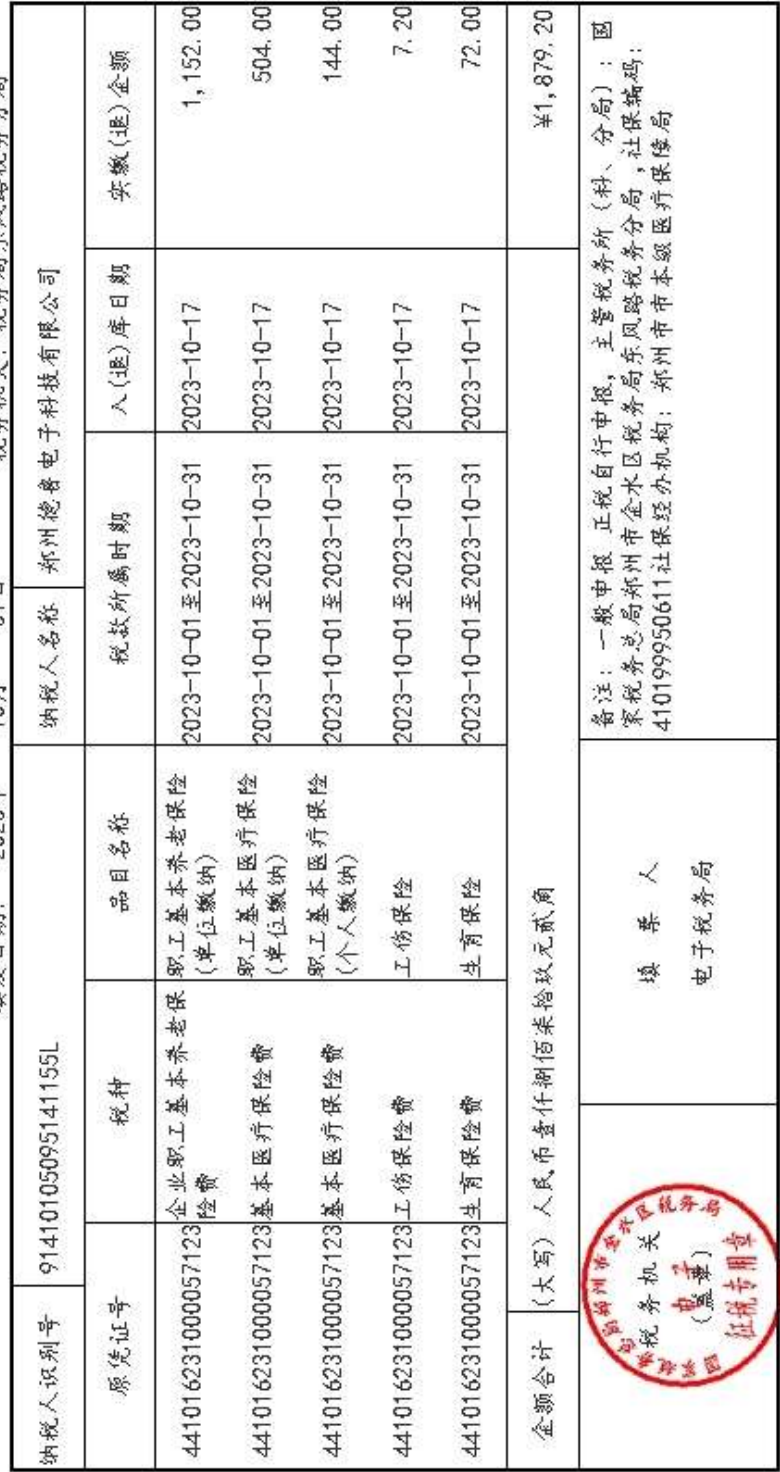 纳税人识别号 91410105095141155L 纳税人名称 郑州德睿电子科技有限公司
原凭证号 税种 品目名称 税款所属时期 入(退)库日期 实缴(退)金额
441016231000057123 企业职工基本养老保险费 职工基本养老保险(单位缴纳) 2023-10-01至2023-10-31 2023-10-17 1,152.00
441016231000057123 基本医疗保险费 职工基本医疗保险(单位缴纳) 2023-10-01至2023-10-31 2023-10-17 504.00
441016231000057123 基本医疗保险费 职工基本医疗保险(个人缴纳) 2023-10-01至2023-10-31 2023-10-17 144.00
441016231000057123 工伤保险费 工伤保险 2023-10-01至2023-10-31 2023-10-17 7.20
441016231000057123 生育保险费 生育保险 2023-10-01至2023-10-31 2023-10-17 72.00
金额合计 (大写)人民币壹仟捌佰柒拾玖元贰角 ¥1,879.20
税务机关
(盖章)
国家税务总局郑州市金水区税务局
电子
征税专用章
填票人
电子税务局
备注:一般申报 正税自行申报,主管税务所(科、分局):国
家税务总局郑州市金水区税务局东风路税务分局,社保编码:
410199950611社保经办机构:郑州市市本级医疗保障局